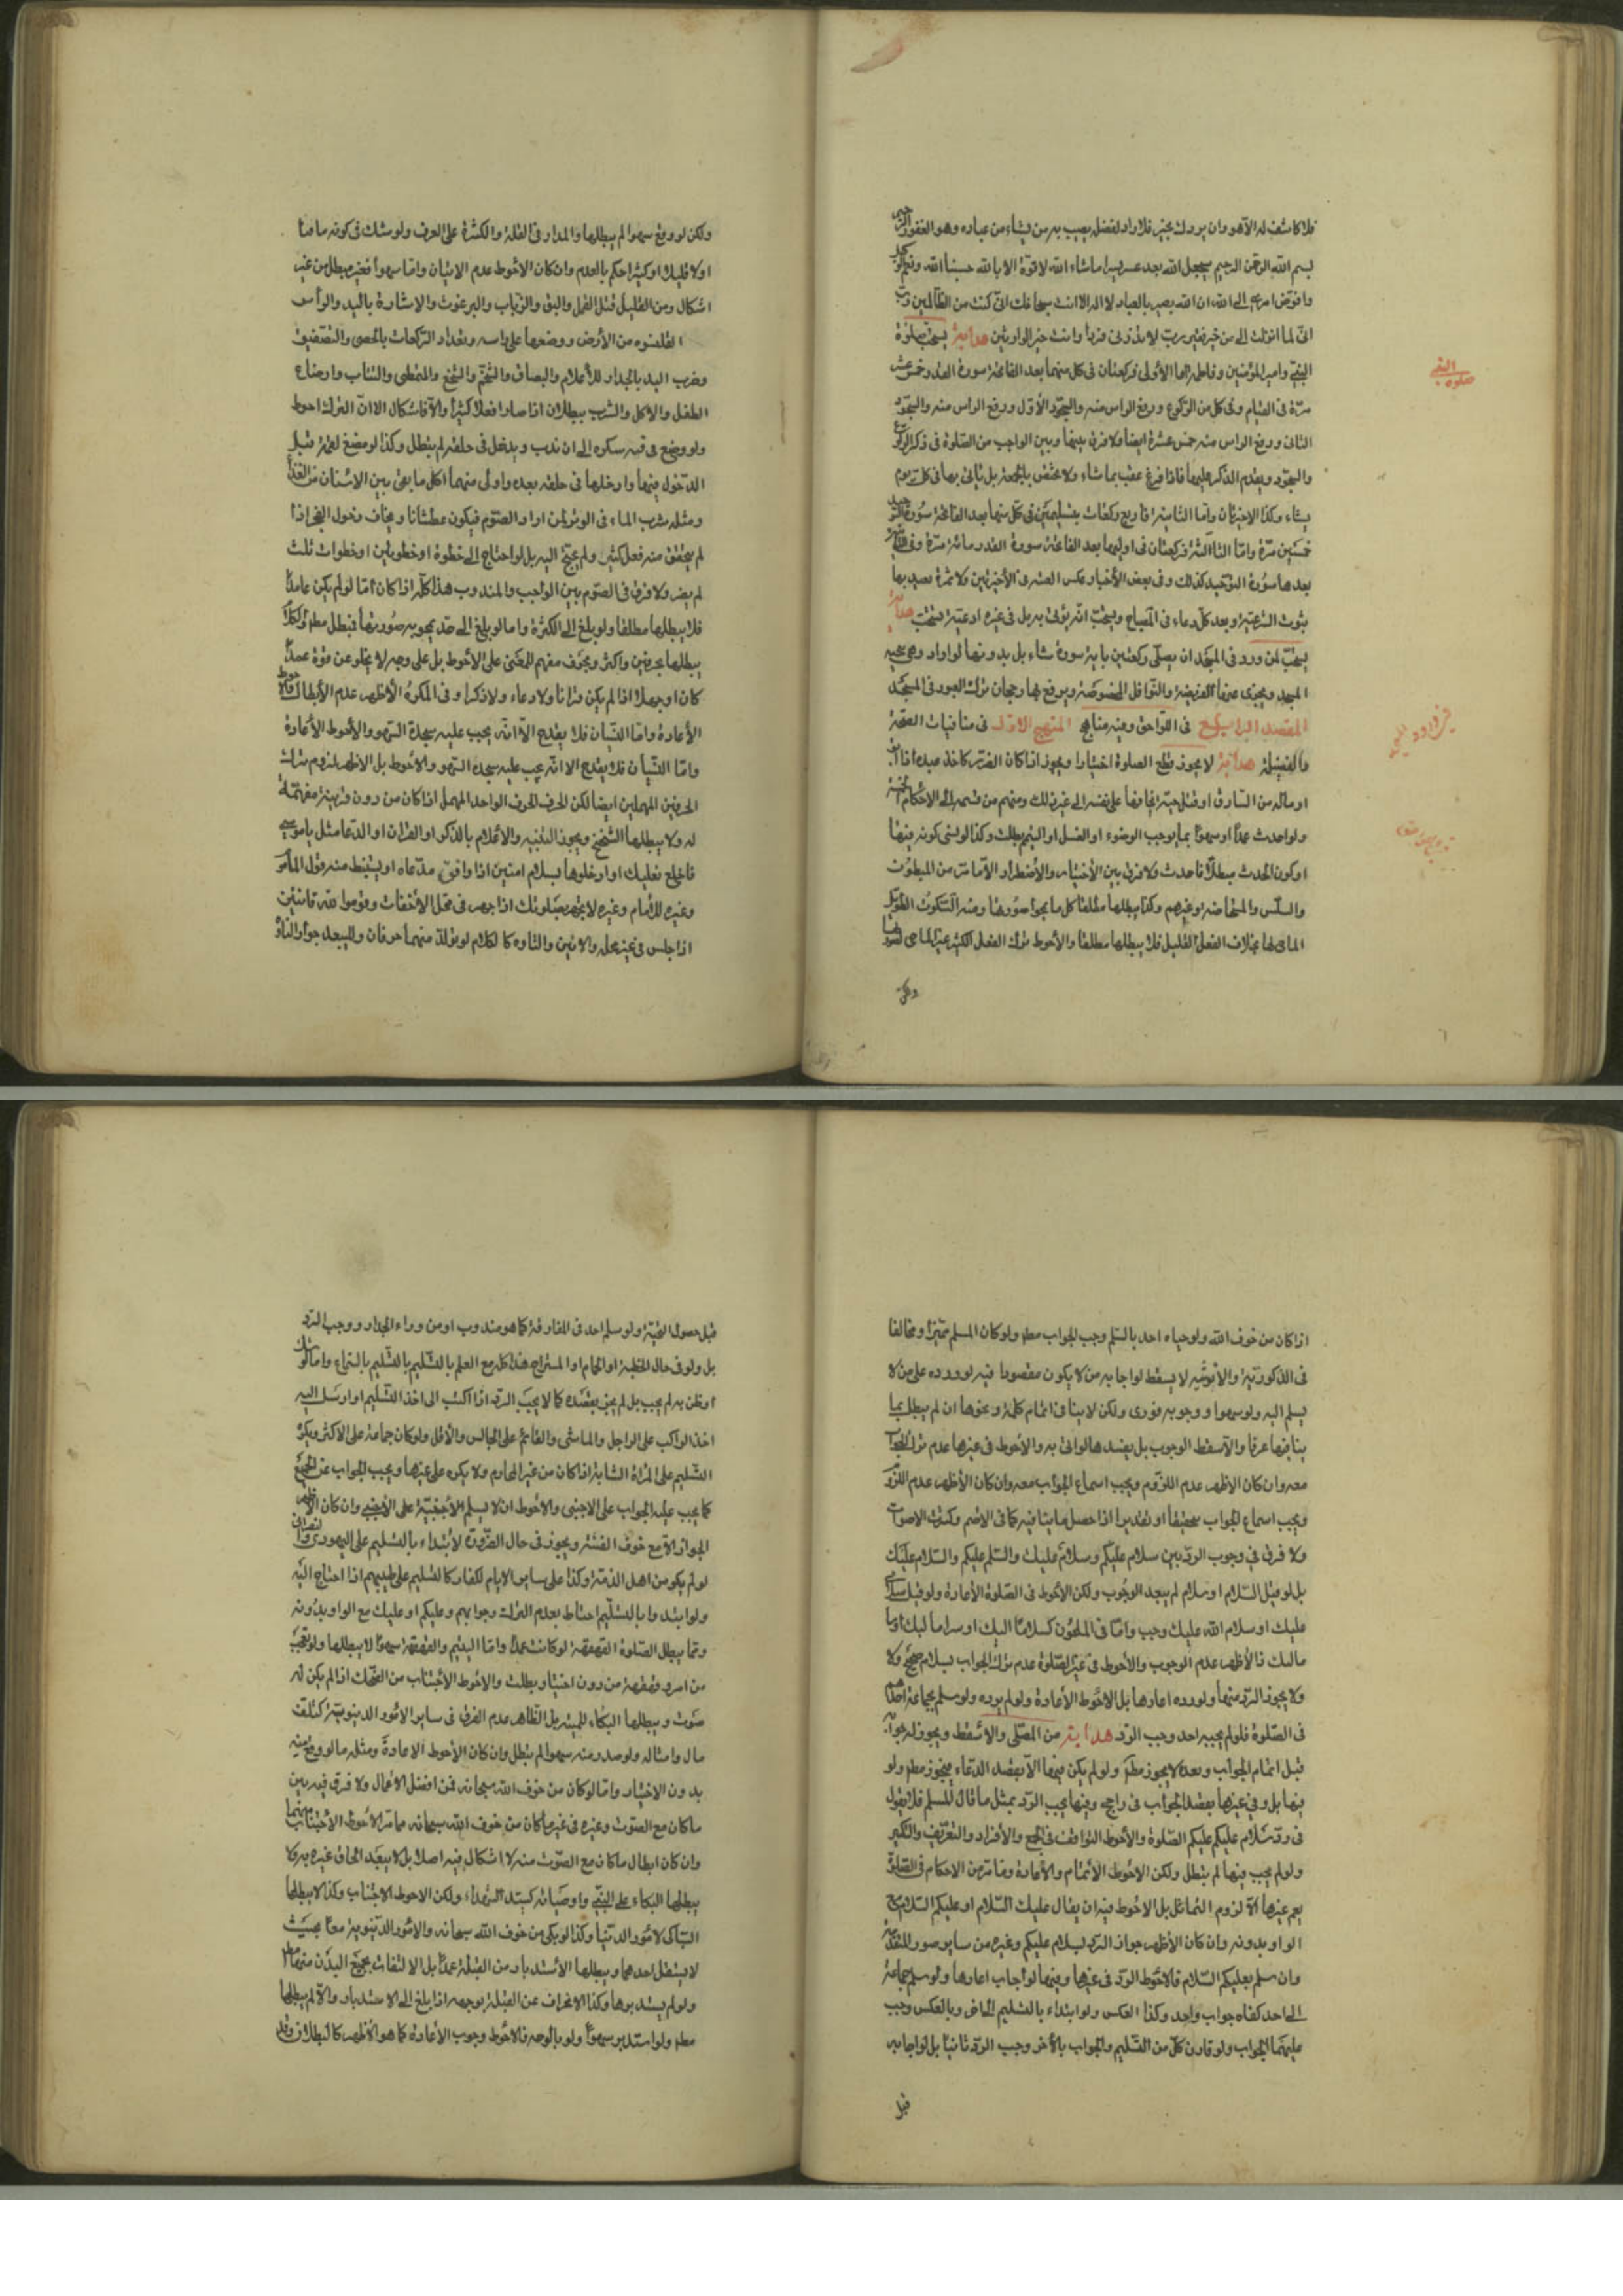 فلا كاشف له الا هو وان يردك بخير فلا راد لفضله يصيب به من يشاء من عباده وهو الغفور الرحيم
بسم الله الرحمن الرحيم سيجعل الله بعد عسر يسرا ما شاء الله لا قوة الا بالله حسبنا الله ونعم الوكيل
وافوض امرى الى الله ان الله بصير بالعباد لا اله الا انت سبحانك انى كنت من الظالمين رب
انى لما انزلت الى من خير فقير رب لا تذرنى فردا وانت خير الوارثين هداية يستحب صلوة
النبى وامير المؤمنين وفاطمة اما الأولى فركعتان فى كل منهما بعد الفاتحة سورة القدر خمس عشر
مرة فى القيام وفى كل من الركوع ورفع الراس منه والسجود الأول ورفع الراس منه والسجود
الثانى ورفع الراس منه خمس عشرة ايضا ولا فرق بينها وبين الواجب من الصلوة فى ذكر الركوع
والسجود ويقدم الذكر عليها فاذا فرغ عقب بما شاء ولا تختص بالجمعة بل يأتى بها فى كل يوم
يشاء وكذا الاخيرتان واما الثانية فاربع ركعات بتسليمتين فى كل منها بعد الفاتحة سورة التوحيد
خمسين مرة واما الثالثة فركعتان فى اوليهما بعد الفاتحة سورة القدر مائة مرة وفى
بعدها سورة التوحيد كذلك وفى بعض الأخبار عكس العشر فى الأخيرتين ولا ثمرة يعتد بها
يستحب لمن ورد فى المسجد ان يصلى ركعتين باية سورة شاء بل بدونها لو اراد وهى تحية
المسجد ويجزى عنها الفريضة والنوافل المخصوصة ويرفع بها رجحان ترك العبور فى المسجد
المقصد الرابع فى اللواحق وفيه مناهج المنهج الاول فى منافيات الصحة
والفضيلة هداية لا يجوز قطع الصلوة اختيارا ويجوز اذا كان لضرر كاخذ عبده
او ماله من السارق او قتل حية يخافها على نفسه الى غير ذلك ومنهم من قسمه الى الاحكام الخمسة
ولو احدث عمدا او سهوا بما يوجب الوضوء او الغسل او التيمم بطلت وكذا لو نسى كونه فيها
او كون الحدث مبطلا فاحدث ولا فرق بين الأختيار والأضطرار الا ما مر من المبطون
والسلس والمستحاضة وغيرهم وكذا يبطلها مطلقا كل ما يمحو صورتها ومنه السكوت الطويل
الماحى لها بخلاف الفعل القليل فلا يبطلها مطلقا والأحوط ترك الفعل الكثير غير الماحى لصورتها
ولكن
صلوة النبى
ولكن لو وقع سهوا لم يبطلها والمدار فى القلة والكثرة على العرف ولو شك فى كونه ماحيا
او لا قليلا او كثيرا حكم بالعدم وان كان الأحوط عدم الاتيان واما سهوا فغير مبطل من غير
اشكال ومن القليل قتل القمل والبق والذباب والبرغوث والاشارة باليد والرأس
القلنسوة من الأرض ووضعها على راسه وتعداد الركعات بالحصى والتصفيق
وضرب اليد بالجدار للأعلام والبصاق والتنخع والتمطى والتثاوب وارضاع
الطفل والأكل والشرب يبطلان اذا صارا فعلا كثيرا والا فاشكال الا ان الترك احوط
ولو وضع فى فمه سكرة الى ان تذب ويدخل فى حلقه لم يبطل وكذا لو مضغ لقمة قبل
الدخول فيها وادخلها فى حلقه بعده واولى منهما اكل ما بقى بين الاسنان من الغذاء
ومثله شرب الماء فى الوتر لمن اراد الصوم فيكون عطشانا ويخاف دخول الفجر اذا
لم يتحقق منه فعل كثير ولم يحتج اليه بل لو احتاج الى خطوة او خطوتين او خطوات ثلث
لم يضر ولا فرق فى الصوم بين الواجب والمندوب هذا كله اذا كان اما لو لم يكن عامدا
فلا يبطلها مطلقا ولو بلغ الى الكثرة واما لو بلغ الى حد يمحو به صورتها فتبطل مطم والكلام
يبطلها بحرفين واكثر وبحرف مفهم للمعنى على الأحوط بل على وجه لا يخلو عن قوة عمدا
كان او جهلا اذا لم يكن قرانا ولا دعاء ولا ذكرا وفى المكره الأظهر عدم الأبطال
الأعادة واما النسيان فلا يقدح الا انه يجب عليه سجدة السهو والأحوط الأعادة
واما النسيان فلا يقدح الا انه يجب عليه سجدة السهو والأحوط بل الاظهر لزوم ترك
الحرفين المهملين ايضا لكن الحرف الواحد المهمل اذا كان من دون قرينة مفهمة
له ولا يبطلها التنحنح ويجوز التنبيه والأعلام بالذكر او القران او الدعا مثل يا موسى
فاخلع نعليك او ادخلوها بسلام امنين اذا وافق مدعاه او يستنبط منه قول المأمور
وغيره للأمام وغيره لا تجهر بصلوتك اذا جهر فى محل الأخفات وقوموا لله قانتين
اذا جلس فى غير محله والانين والتاوه كالكلام لو تولد منهما حرفان وللبعد جواز التأوه
اذا كان من خوف الله ولو حياه احد بالسلم وجب الجواب مطم ولو كان المسلم مميزا ومخالفا
فى الذكورية والأنوثية لا يسقط لو اجابه من لا يكون مقصودا فيه لو ورده على من لا
يسلم اليه ولو سهوا ووجوبه فورى ولكن لا ينافى اتمام كلمة ونحوها ان لم يطل بما
ينافيها عرفا والا سقط الوجوب بل يفسدها لو اتى به والأحوط فى غيرها عدم ترك الجواب
معه وان كان الاظهر عدم اللزوم ويجب اسماع الجواب معه وان كان الأظهر عدم اللزوم
ويجب اسماع الجواب تحقيقا او تقديرا اذا حصل ما ينافيه كما فى الاصم وكثرت الاصوات
ولا فرق فى وجوب الرد بين سلام عليكم وسلام عليك والسلم عليكم والسلام عليك
بل لو قيل السلام او سلام لم يبعد الوجوب ولكن الأحوط فى الصلوة الأعادة ولو قيل سلامى
عليك او سلام الله عليك وجب واما فى الملحون كسلاما اليك او سراما لبك
فالأظهر عدم الوجوب والأحوط فى غير الصلوة عدم ترك الجواب بسلام صحيح ولا
ولا يجوز الرد منها ولو رده اعادها بل الأحوط الأعادة ولو لم يرده ولو سلم بجماعة احدهم
فى الصلوة فلو لم يجبه احد وجب الرد هداية من المصلى والا سقط ويجوز له جوابه
قبل اتمام الجواب وبعده لا يجوز مطم ولو لم يكن فيها الا بقصد الدعاء فيجوز مطم ولو
فيها بل وفى غيرها بقصد الجواب فى راجح وفيها يجب الرد بمثل ما قال المسلم فلا يقول
فى رد سلام عليكم عليكم الصلوة والأحوط التوافق فى الجمع والأفراد والتعريف والتنكير
ولو لم يجب فيها لم تبطل ولكن الاحوط الأتمام والأعادة وما مر من الاحكام فى الصلوة
يعم غيرها الا لزوم التماثل بل الاحوط فيه ان يقال عليك السلام او عليكم السلام مع
الواو بدونه وان كان الأظهر جواز الرد بسلام عليكم وغيره من ساير صور المتقدمة
وان سلم بعليكم السلام فالاحوط الرد فى غيرها وفيها لو اجاب اعادها ولو سلم جماعة
الى احد كفاه جواب واحد وكذا العكس ولو ابتداء بالتسليم الحاضر وبالعكس وجب
عليهما الجواب ولو قارن كل من التسليم والجواب بالآخر وجب الرد ثانيا بل لو اجابه
قبل
قبل حصول التحية ولو سلم احد فى المفارقة كما هو مندوب او من وراء الجدار ووجب الرد
بل ولو فى حال الخطبة او الحمام او المستراح هذا كله مع العلم بالتسليم بالسماع واما لو شك
او ظن به لم يجب بل لم يجز بقصده كما لا يجب الرد اذا اكتب الى اخذ التسليم او ارسل اليه
اخذ الراكب على الراجل والماشى والقائم على الجالس والأقل ولو كان جماعة على الاكثر ويكره
التسليم على المرأة الشابة اذا كان من غير المحارم ولا يكره على غيرها ويجب الجواب عن الجميع
كما يجب عليه الجواب على الاجنبى والأحوط ان لا يسلم الأجنبية على الأجنبى وان كان الأظهر
الجواز الا مع خوف الفتنة ويجوز فى حال الضرورة الأبتداء بالتسليم على اليهودى والنصرانى
لو لم يكن من اهل الذمة وكذا على ساير الايام لكفار كالتسليم على طبيبهم اذا احتاج اليه
ولو ابتدوا بالتسليم احتاط بعدم الترك وجوابهم وعليكم او عليك مع الواو بدونه
ومما يبطل الصلوة القهقهة لو كانت عمدا واما التبسم والقهقهة سهوا لا يبطلها ولو تعجب
من امر وقهقهه من دون اختيار بطلت والاحوط الأجتناب من الضحك اذا لم يكن له
صوت ويبطلها البكاء للميت بل الظاهر عدم الفرق فى ساير الأمور الدنيوية كتلف
مال وامثاله ولو صدر منه سهوا لم تبطل وان كان الأحوط الاعادة ومثله ما لو وقع منه
بدون الاختيار واما لو كان من خوف الله سبحانه فمن افضل الأعمال ولا فرق فيه بين
ما كان مع الصوت وغيره فى غير ما كان من خوف الله سبحانه مما مر الأحوط الأجتناب منهما
وان كان ابطال ما كان مع الصوت منه لا اشكال فيه اصلا بل لا يبعد الحاق غيره به ولا
يبطلها البكاء على النبى واوصيائه كسيد الشهداء ولكن الاحوط الاجتناب وكذا لا يبطلها
التباكى لامور الدنيا وكذا لو بكى من خوف الله سبحانه والأمور الدنيوية معا بحيث
لا يستقل احدهما ويبطلها الأستدبار من القبلة عمدا بل الالتفات بجميع البدن منها
ولو لم يستدبرها وكذا الانحراف عن القبلة بوجهه اذا بلغ الى الاستدبار والا لم يبطلها
مطم ولو استدبر سهوا ولو بالوجه فالاحوط وجوب الأعادة كما هو الأظهر كالبطلان